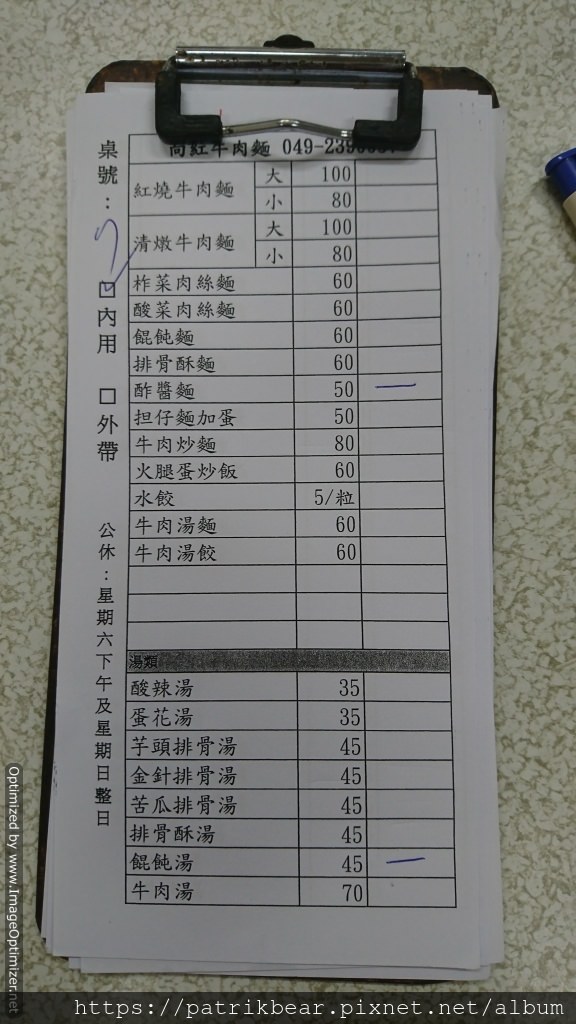 尚紅牛肉麵 049-239
桌號：
☐內用 ☐外帶
公休：星期六下午及星期日整日
紅燒牛肉麵 大 100
小 80
清燉牛肉麵 大 100
小 80
柞菜肉絲麵 60
酸菜肉絲麵 60
餛飩麵 60
排骨酥麵 60
酢醬麵 50 一
担仔麵加蛋 50
牛肉炒麵 80
火腿蛋炒飯 60
水餃 5/粒
牛肉湯麵 60
牛肉湯餃 60
湯類
酸辣湯 35
蛋花湯 35
芋頭排骨湯 45
金針排骨湯 45
苦瓜排骨湯 45
排骨酥湯 45
餛飩湯 45 一
牛肉湯 70
Optimized by www.ImageOptimizer.net
https://patrikbear.pixnet.net/album